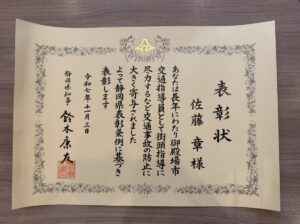 表彰状
佐藤 章 様
あなたは長年にわたり御殿場市
交通指導員として街頭指導に
尽力するなど交通事故の防止に
大きく寄与されました
よって静岡県表彰条例に基づき
表彰します
令和七年十一月三日
静岡県知事 鈴木康友